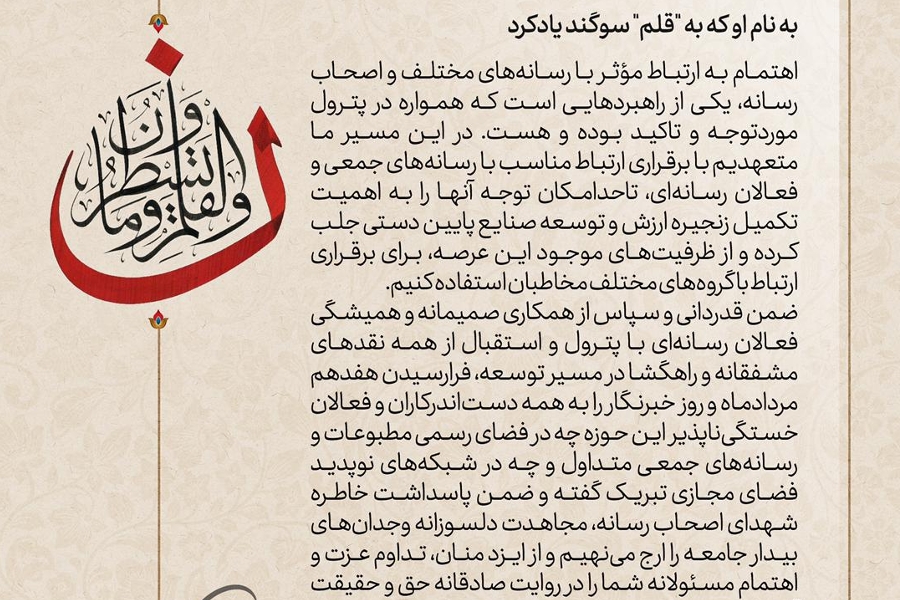 به نام او که به "قلم" سوگند یاد کرد
اهتمام به ارتباط مؤثر با رسانه‌های مختلف و اصحاب
رسانه، یکی از راهبردهایی است که همواره در پترول
موردتوجه و تاکید بوده و هست. در این مسیر ما
متعهدیم با برقراری ارتباط مناسب با رسانه‌های جمعی و
فعالان رسانه‌ای، تاحدامکان توجه آنها را به اهمیت
تکمیل زنجیره ارزش و توسعه صنایع پایین دستی جلب
کرده و از ظرفیت‌های موجود این عرصه، برای برقراری
ارتباط با گروه‌های مختلف مخاطبان استفاده کنیم.
ضمن قدردانی و سپاس از همکاری صمیمانه و همیشگی
فعالان رسانه‌ای با پترول و استقبال از همه نقدهای
مشفقانه و راهگشا در مسیر توسعه، فرارسیدن هفدهم
مردادماه و روز خبرنگار را به همه دست‌اندرکاران و فعالان
خستگی‌ناپذیر این حوزه چه در فضای رسمی مطبوعات و
رسانه‌های جمعی متداول و چه در شبکه‌های نوپدید
فضای مجازی تبریک گفته و ضمن پاسداشت خاطره
شهدای اصحاب رسانه، مجاهدت دلسوزانه وجدان‌های
بیدار جامعه را ارج می‌نهیم و از ایزد منان، تداوم عزت و
اهتمام مسئولانه شما را در روایت صادقانه حق و حقیقت
ن والقلم وما یسطرون